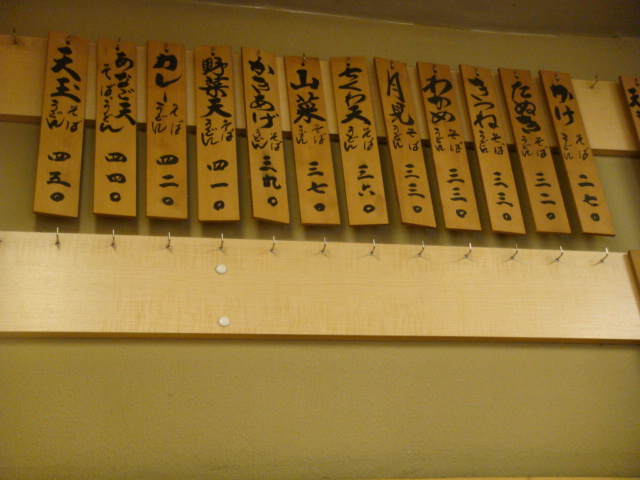 かけ そば うどん 二七〇
たぬき そば うどん 三二〇
きつね そば うどん 三三〇
わかめ そば うどん 三三〇
月見 そば うどん 三三〇
ちくわ天 そば うどん 三六〇
山菜 そば うどん 三七〇
かきあげ そば うどん 三九〇
野菜天 そば うどん 四一〇
カレー そば うどん 四二〇
あなご天 そば うどん 四四〇
天玉 そば うどん 四五〇